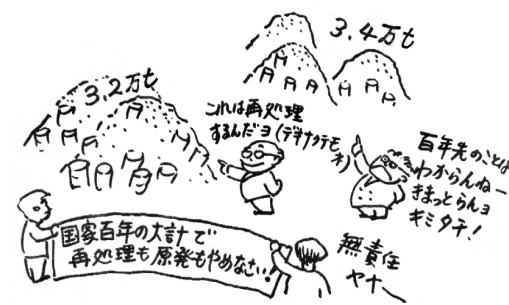 3.4万t
3.2万t
これは再処理
するんだヨ(デキナクテモ
ネ)
百年先のことは
わからんねー
きまっとらんョ
キミタチ!
国家百年の大計で
再処理も原発もやめなさい!
無責任
ヤナ〜